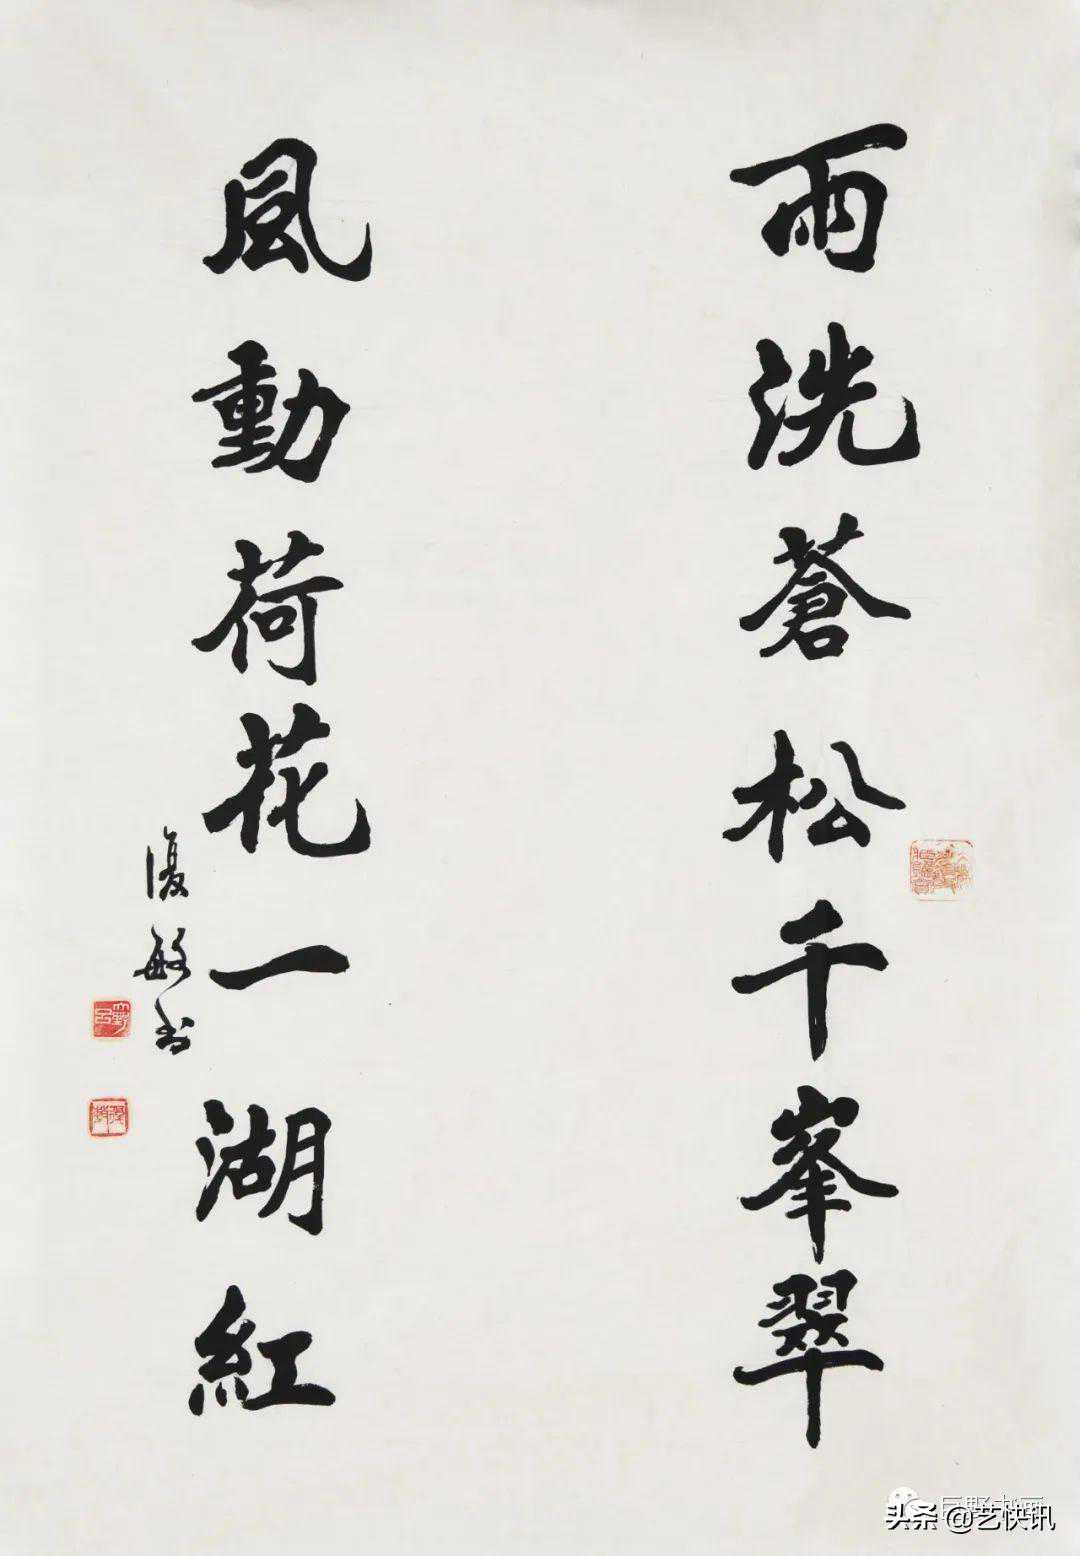 雨洗蒼松千峯翠
風動荷花一湖紅
復敏书
头条 @艺快讯